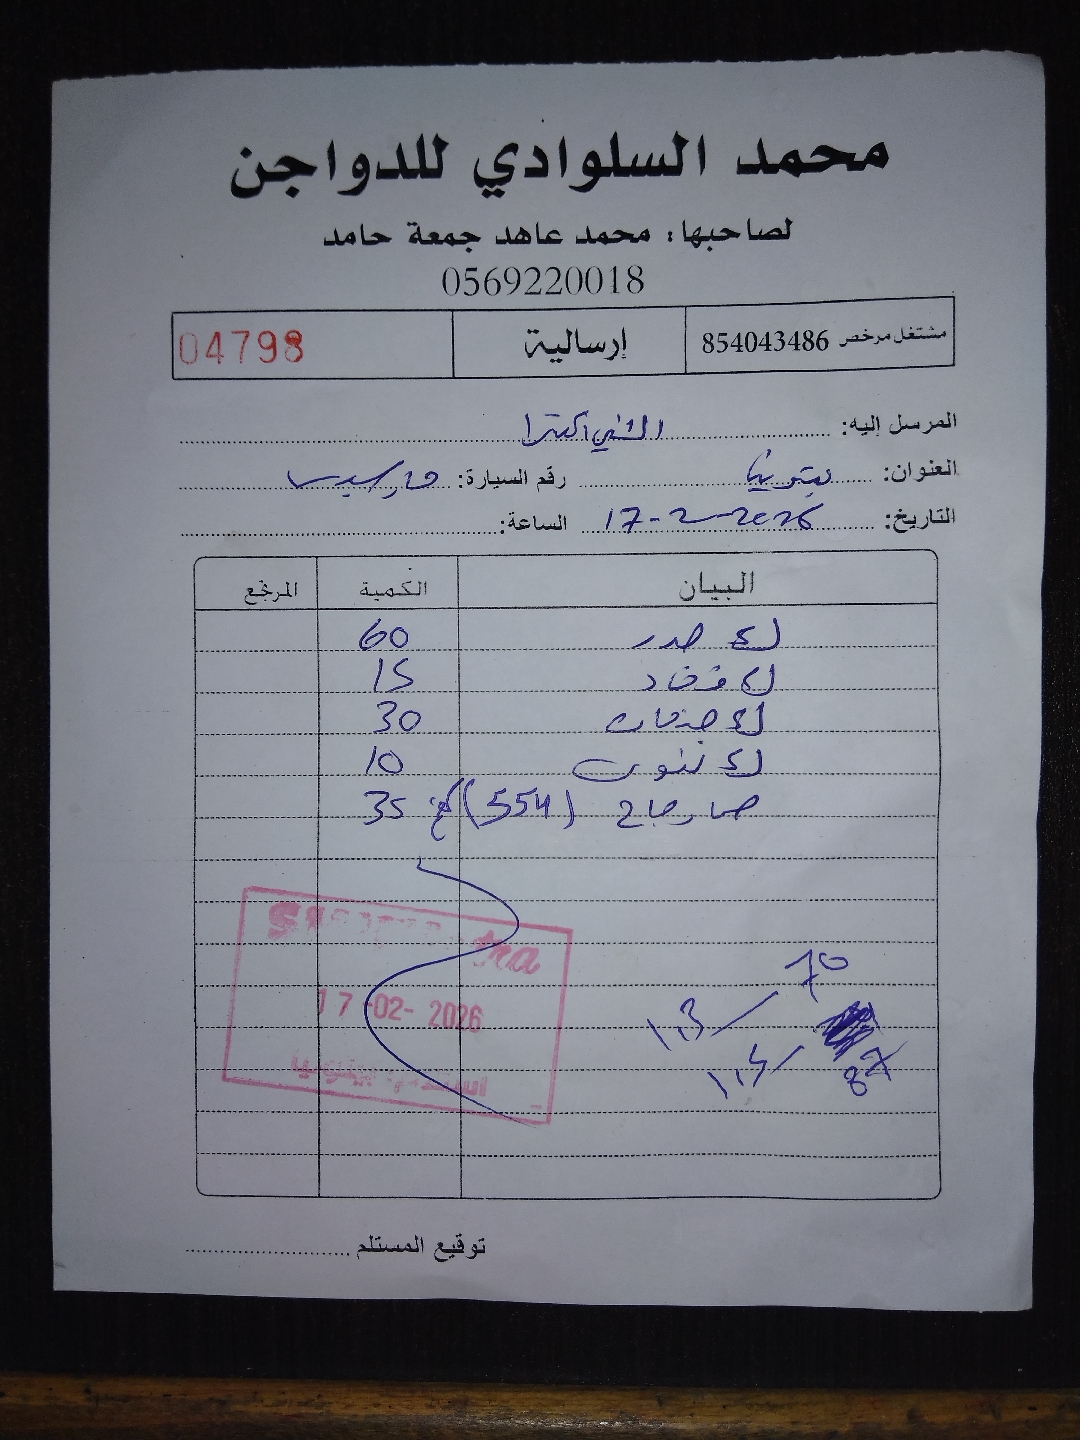 محمد السلوادي للدواجن
لصاحبها: محمد عاهد جمعة حامد
0569220018
مشتغل مرخص 854043486 إرسالية 04798
المرسل إليه: الشني اكسترا
العنوان: بيتونيا رقم السيارة:
التاريخ: 17-2-2026 الساعة:
البيان الكمية المرتجع
ك صدر 60
ك فخاد 15
ك 30
ك 10
(554) 35
tra
17-02-2026
بيتونيا
1,3 — 70
1,5 — 87
توقيع المستلم